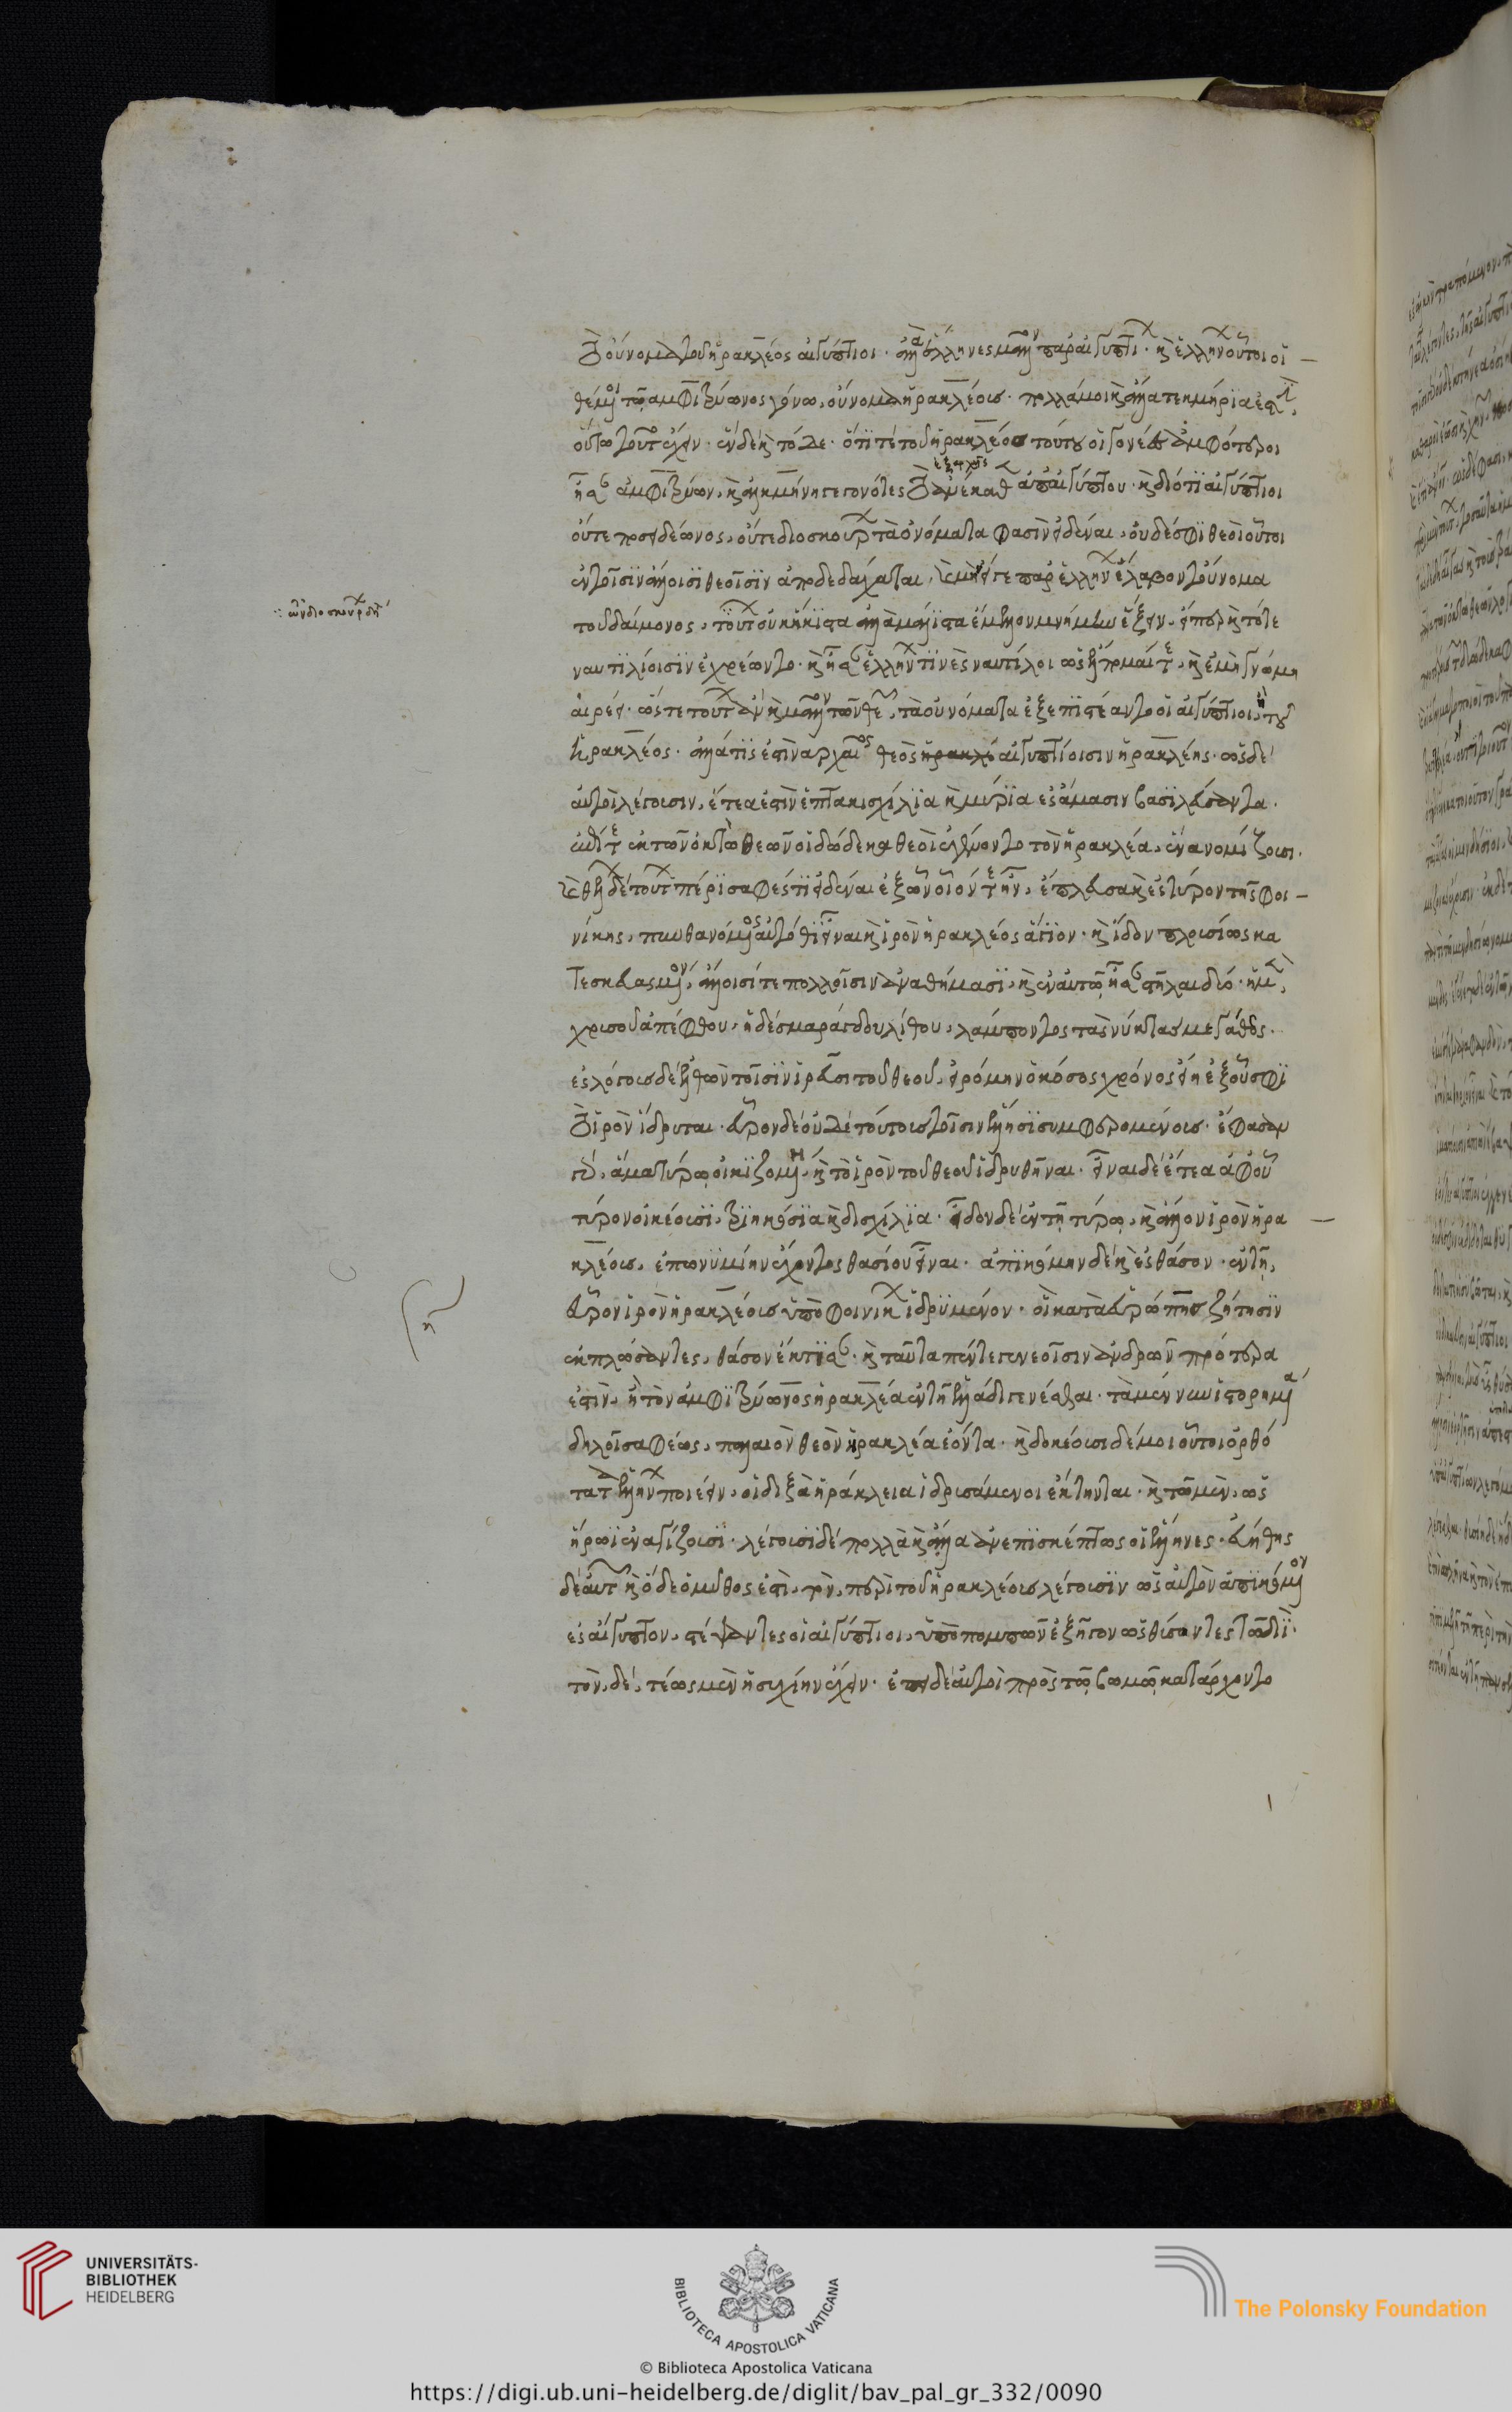 τὸ οὔνομα τοῦ ἡρακλέος αἰγύπτιοι· ἀλλὰ ἕλληνες μᾶλλον παρ' αἰγυπτίων· καὶ ἑλλήνων οὗτοι οἱ
θέμενοι τῶ ἀμφιτρύωνος γόνω, οὔνομα ἡρακλέους· πολλά μοι καὶ ἄλλα τεκμήρια ἐστὶ,
οὕτω τοῦτο ἔχειν· ἐν δὲ καὶ τόδε· ὅτι τε τοῦ ἡρακλέος τούτου οἱ γονέες ἀμφότεροι
ἦσαν ἀμφιτρύων, καὶ ἀλκμήνη γεγονότες τὸ ἀνέκαθεν ἀπ' αἰγύπτου· καὶ διότι αἰγύπτιοι
οὔτε ποσειδέωνος, οὔτε διοσκούρων τὰ ὀνόματα φασὶν εἰδέναι, οὐδέ σφι θεοὶ οὗτοι
ἐν τοῖσιν ἄλλοισι θεοῖσιν ἀποδεδέχαται, καὶ μὴν εἴ γε παρ' ἑλλήνων ἔλαβον τοὔνομα
∴ ὢν διοσκούρων δὴ
του δαίμονος, τούτων οὐκ ἥκιστα ἀλλὰ μάλιστα ἔμελλον μνήμην ἕξειν, εἴπερ καὶ τότε
ναυτιλίοισιν ἐχρέωντο· καὶ ἦσαν ἑλλήνων τινὲς ναυτίλοι ὡς ἔλπομαί τε, καὶ ἐμὴ γνώμη
αἱρέει· ὥστε τούτων ἂν καὶ μᾶλλον τῶν θεῶν, τὰ οὐνόματα ἐξεπιστέαντο οἱ αἰγύπτιοι, ἢ τοῦ
ἡρακλέος· ἀλλά τις ἐστὶν ἀρχαῖος θεὸς ἡρακλέ αἰγυπτίοισιν ἡρακλέης· ὡς δὲ
αὐτοὶ λέγουσιν, ἔτεα ἐστὶν ἑπτακισχίλια καὶ μύρια ἐς ἄμασιν βασιλεύσαντα.
ἐπεί τε ἐκ τῶν ὀκτὼ θεῶν οἱ δώδεκα θεοὶ ἐγένοντο τὸν ἡρακλέα, ἕνα νομίζουσι.
καὶ θέλων δὲ τούτων πέρι σαφές τι εἰδέναι ἐξ ὧν οἷόν τε ἦν, ἔπλευσα καὶ ἐς τύρον τῆς φοι
νίκης, πυνθανόμενος αὐτόθι εἶναι καὶ ἱρὸν ἡρακλέος ἅγιον· καὶ ἴδον πλουσίως κα
τεσκευασμένον, ἄλλοισί τε πολλοῖσιν ἀναθήμασι, καὶ ἐν αὐτῶ ἦσαν στῆλαι δύο· ἡ μὲν,
χρυσοῦ ἀπέφθου, ἡ δὲ σμαράγδου λίθου, λάμποντος τὰς νύκτας μέγαθος.
ἐς λόγους δὲ ἐλθὼν τοῖσιν ἱρεῦσι τοῦ θεοῦ, εἰρόμην ὁκόσος χρόνος εἴη ἐξ οὗ σφι
τὸ ἱρὸν ἵδρυται· εὗρον δὲ οὐδὲ τούτους τοῖσιν ἕλλησι συμφερομένους· ἔφασαν
γὰρ, ἅμα τύρω οἰκιζομένη, καὶ τὸ ἱρὸν τοῦ θεοῦ ἱδρυθῆναι· εἶναι δὲ ἔτεα ἀφ' οὗ
τύρον οἰκέουσι, τριηκόσια καὶ δισχίλια· εἶδον δὲ ἐν τῆ τύρω, καὶ ἄλλον ἱρὸν ἡρα
κλέους, ἐπωνυμίην ἔχοντος θασίου εἶναι· ἀπικόμην δὲ καὶ ἐς θάσον· ἐν τῆ,
εὗρον ἱρὸν ἡρακλέους ὑπὸ φοινίκων ἱδρυμένον· οἳ κατὰ εὐρώπης ζήτησιν
ἐκπλώσαντες, θάσον ἔκτισαν· καὶ ταῦτα πέντε γενεοῖσιν ἀνδρῶν πρότερα
ἐστὶν, ἢ τὸν ἀμφιτρύωνος ἡρακλέα ἐν τῆ ἑλλάδι γενέσθαι· τὰ μέν νυν ἱστορημένα
δηλοῖ σαφέως, παλαιὸν θεὸν ἡρακλέα ἐόντα· καὶ δοκέουσι δέ μοι οὗτοι ὀρθό
τατα ἑλλήνων ποιέειν, οἳ διξὰ ἡράκλεια ἱδρυσάμενοι ἔκτηνται· καὶ τῶ μὲν, ὡς
ἥρωϊ ἐναγίζουσι· λέγουσι δὲ πολλὰ καὶ ἄλλα ἀνεπισκέπτως οἱ ἕλληνες· εὐήθης
δὲ αὐτῶν καὶ ὅδε ὁ μῦθος ἐστὶ, τὸν, περὶ τοῦ ἡρακλέους λέγουσιν ὡς αὐτὸν ἀπικόμενον
ἐς αἴγυπτον, στέψαντες οἱ αἰγύπτιοι, ὑπὸ πομπῶν ἐξῆγον ὡς θύσοντες τῶ διῒ·
τὸν, δὲ, τέως μὲν ἡσυχίην ἔχειν· ἐπεὶ δὲ αὐτοὶ πρὸς τῶ βωμῶ κατάρχοντο
UNIVERSITÄTS-
BIBLIOTHEK
HEIDELBERG
BIBLIOTECA APOSTOLICA VATICANA
The Polonsky Foundation
© Biblioteca Apostolica Vaticana
https://digi.ub.uni-heidelberg.de/diglit/bav_pal_gr_332/0090